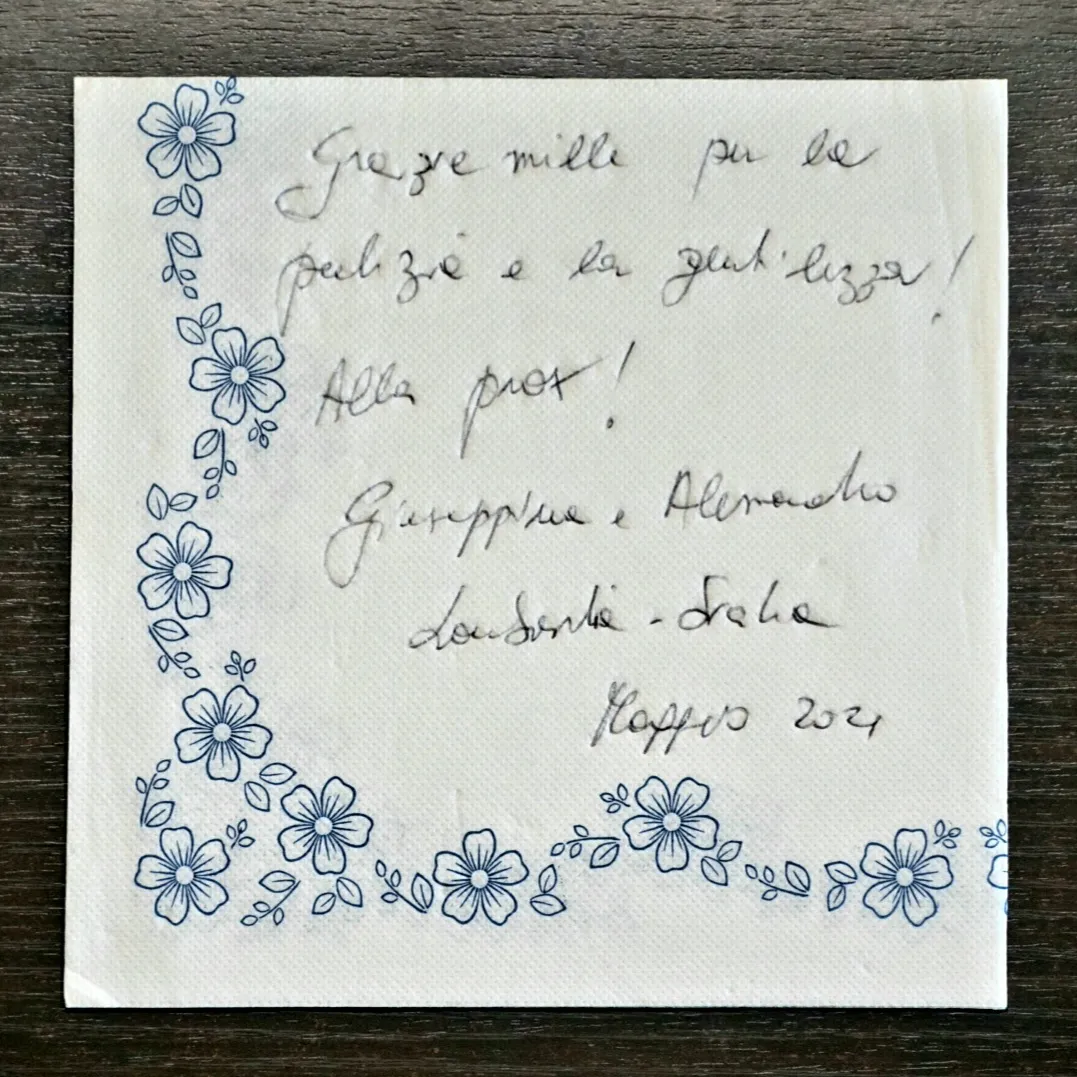 Grazie mille per la
pulizia e la gentilezza!
Alla prox!
Giuseppina e Alessandro
Lombardia - Italia
Maggio 2021